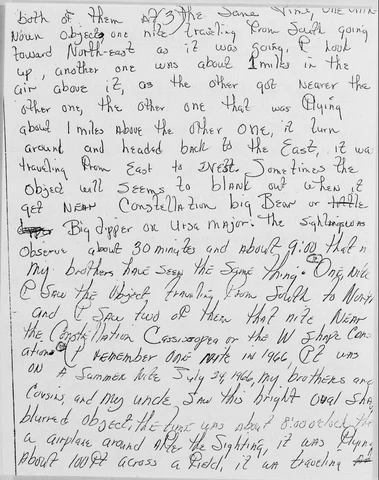 both of them At 3 the same time, one
Noun object, one nite traveling from South going
toward North-east as it was going, I look
up, another one was about 1 miles in the
air above it, as the other got nearer the
other one, the other one that was flying
about 1 miles above the other one, it turn
around and headed back to the East, it wa
traveling from East to West. Sometimes the
object will seems to blank out when it
get near Constellation big Bear or
Big Dipper on Ursa major. The sighting was
observe about 30 minutes and about 9:00 that n
my brothers have seen the same thing. One nite
I saw the object traveling from South to North
and I saw two of them that nite near
the Constellation Cassiopea or the W shape Cons
ation. I remember one nite in 1966, it was
on A Summer Nite July 24, 1966, my brothers and
Cousin, and my uncle saw this bright oval Sha
blurred object, the time was about 8:00 o'clock, the
a airplane around After the Sighting, it was flying
About 100 ft across a field, it wa traveling